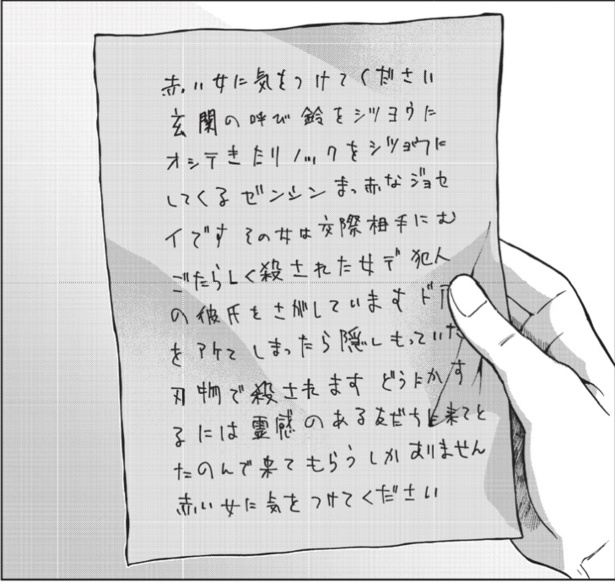 赤い女に気をつけてください
玄関の呼び鈴をシツヨウに
オシテきたりノックをシツヨウに
してくるゼンシンまっ赤なジョセ
イです その女は交際相手にむ
ごたらしく殺された女デ 犯人
の彼氏をさがしています ド
をアケてしまったら隠しもっていた
刃物で殺されます どうにかす
るには霊感のある友だちに来てと
たのんで来てもらうしかありません
赤い女に気をつけてください